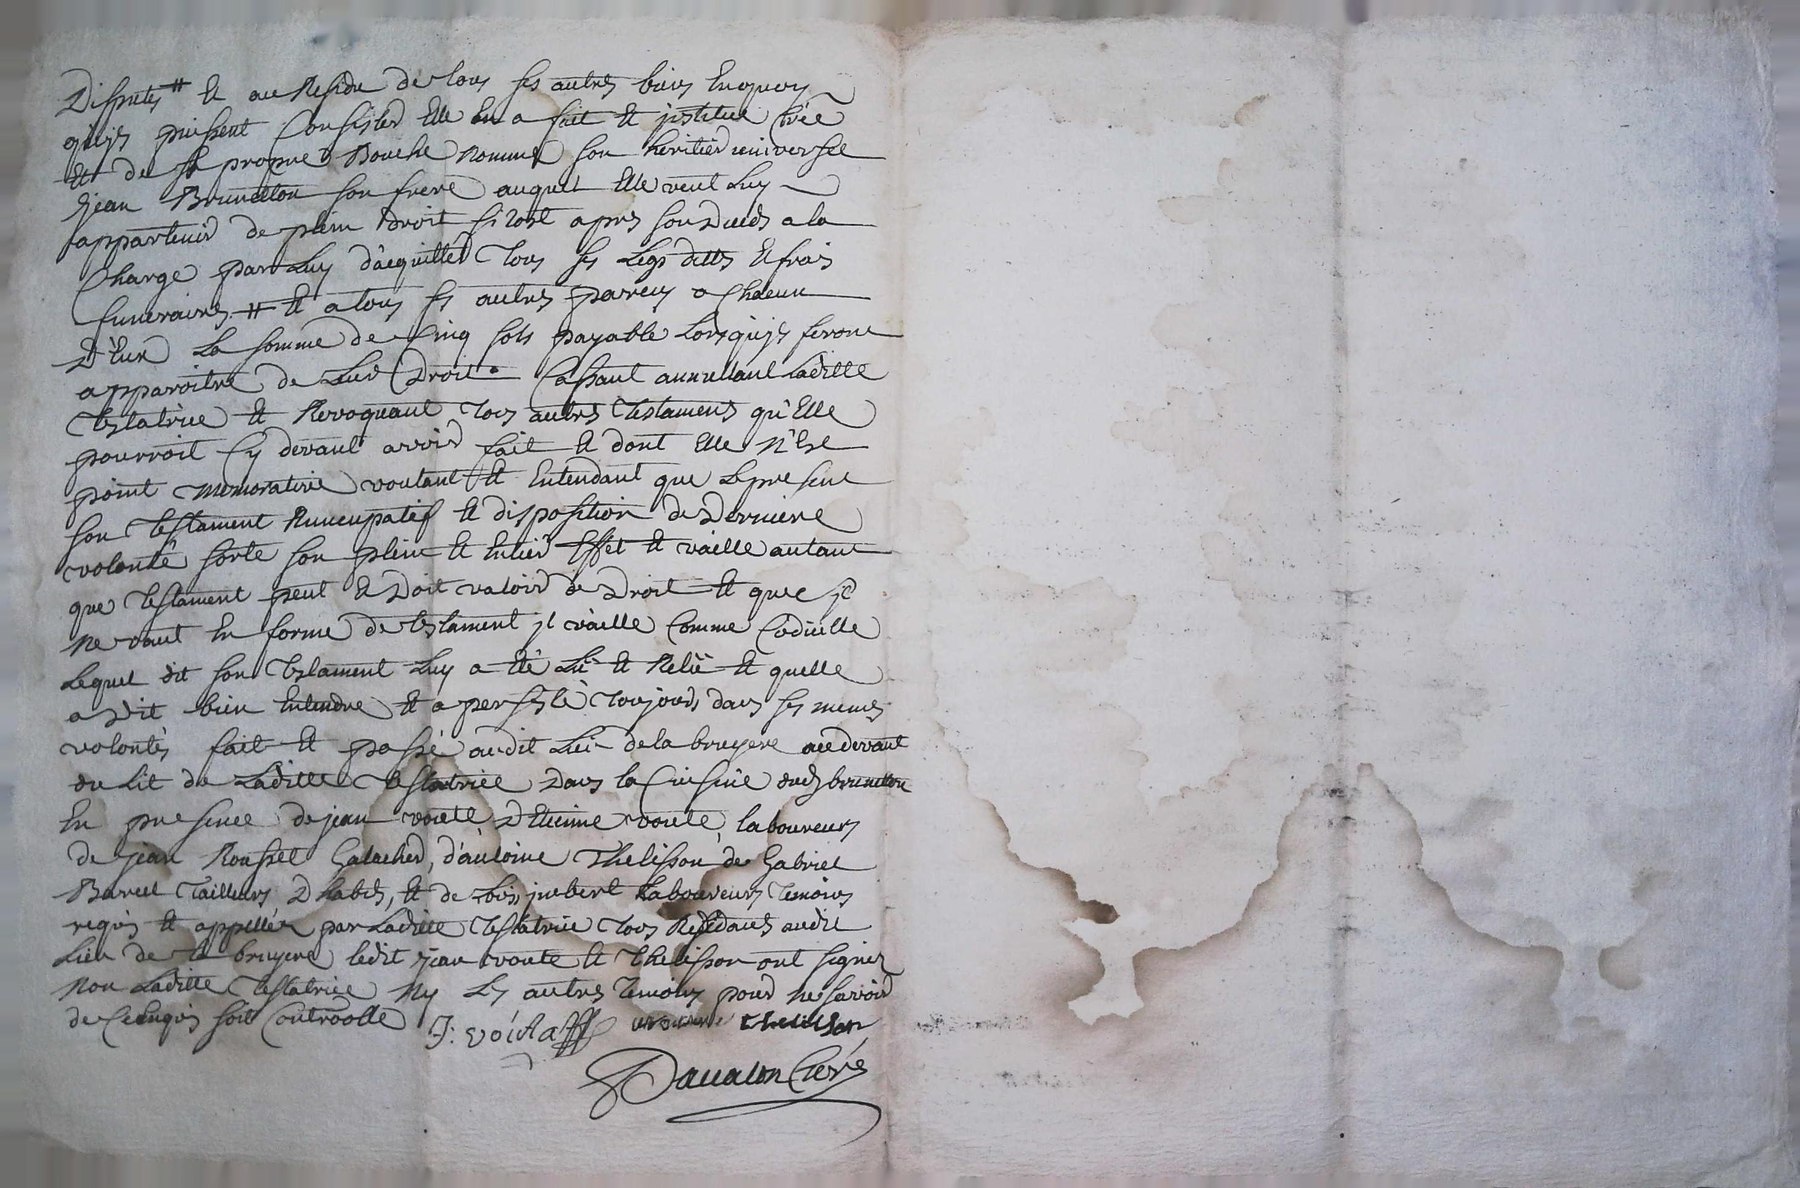 Disputes # Et au Residu de tous ses autres biens Enquoy
qu'ijs puissent Consister Elle En a fait Et jnstitué Créé
Et de sa propre Bouche Nommé son heritier universel
Jean Brunelton son frere auquel Elle veut Luy
appartenir de plein Droit sitost apres son Deceds a la
Charge par Luy d'acquitter Tous ses Legs dettes Et frais
funeraires # Et a tous ses autres parens a Chacun
D'Eux La somme de Cinq sols payable Lorsqu'ijs feront
apparoitre de Leur Droit. Cassant annullant Laditte
Testatrice Et Revoquant Tous autres Testaments qu'Elle
pourroit Cy devant avoir fait Et dont Elle N'Est
point memorative voulant Et Entendant que Le present
son Testament Nuncupatif Et disposition de Derniere
volonté sorte son plein Et Entier Effet Et vaille autant
que Testament peut Et Doit valoir de Droit Et que s'jl
Ne vaut En forme de testament jl vaille Comme Codicille
Lequel dit son Testament Luy a Eté Lû Et Relû Et quelle
a Dit bien Entendre Et a persisté Toujours dans ses memes
volontés fait Et passé audit Lieu de la bruyere au devant
du Lit de Laditte Testatrice Dans la Cuisine dud brunelton
En presence de jean voute D'Etienne voute, laboureurs
de jean Rousset Galocher, d'antoine Thelisson de Gabriel
Barcet Tailleurs D'habits, Et de Loüis jmbert Laboureurs Temoins
requis Et appellés par Laditte Testatrice Tous Residants audit
Lieu de la bruyere ledit jean voute Et Thelisson ont signez
Non Laditte Testatrice Ny Les autres Temoins pour Ne savoir
de Ce Enquis soit Controolle J: voula Thelisson
Davalon Curé